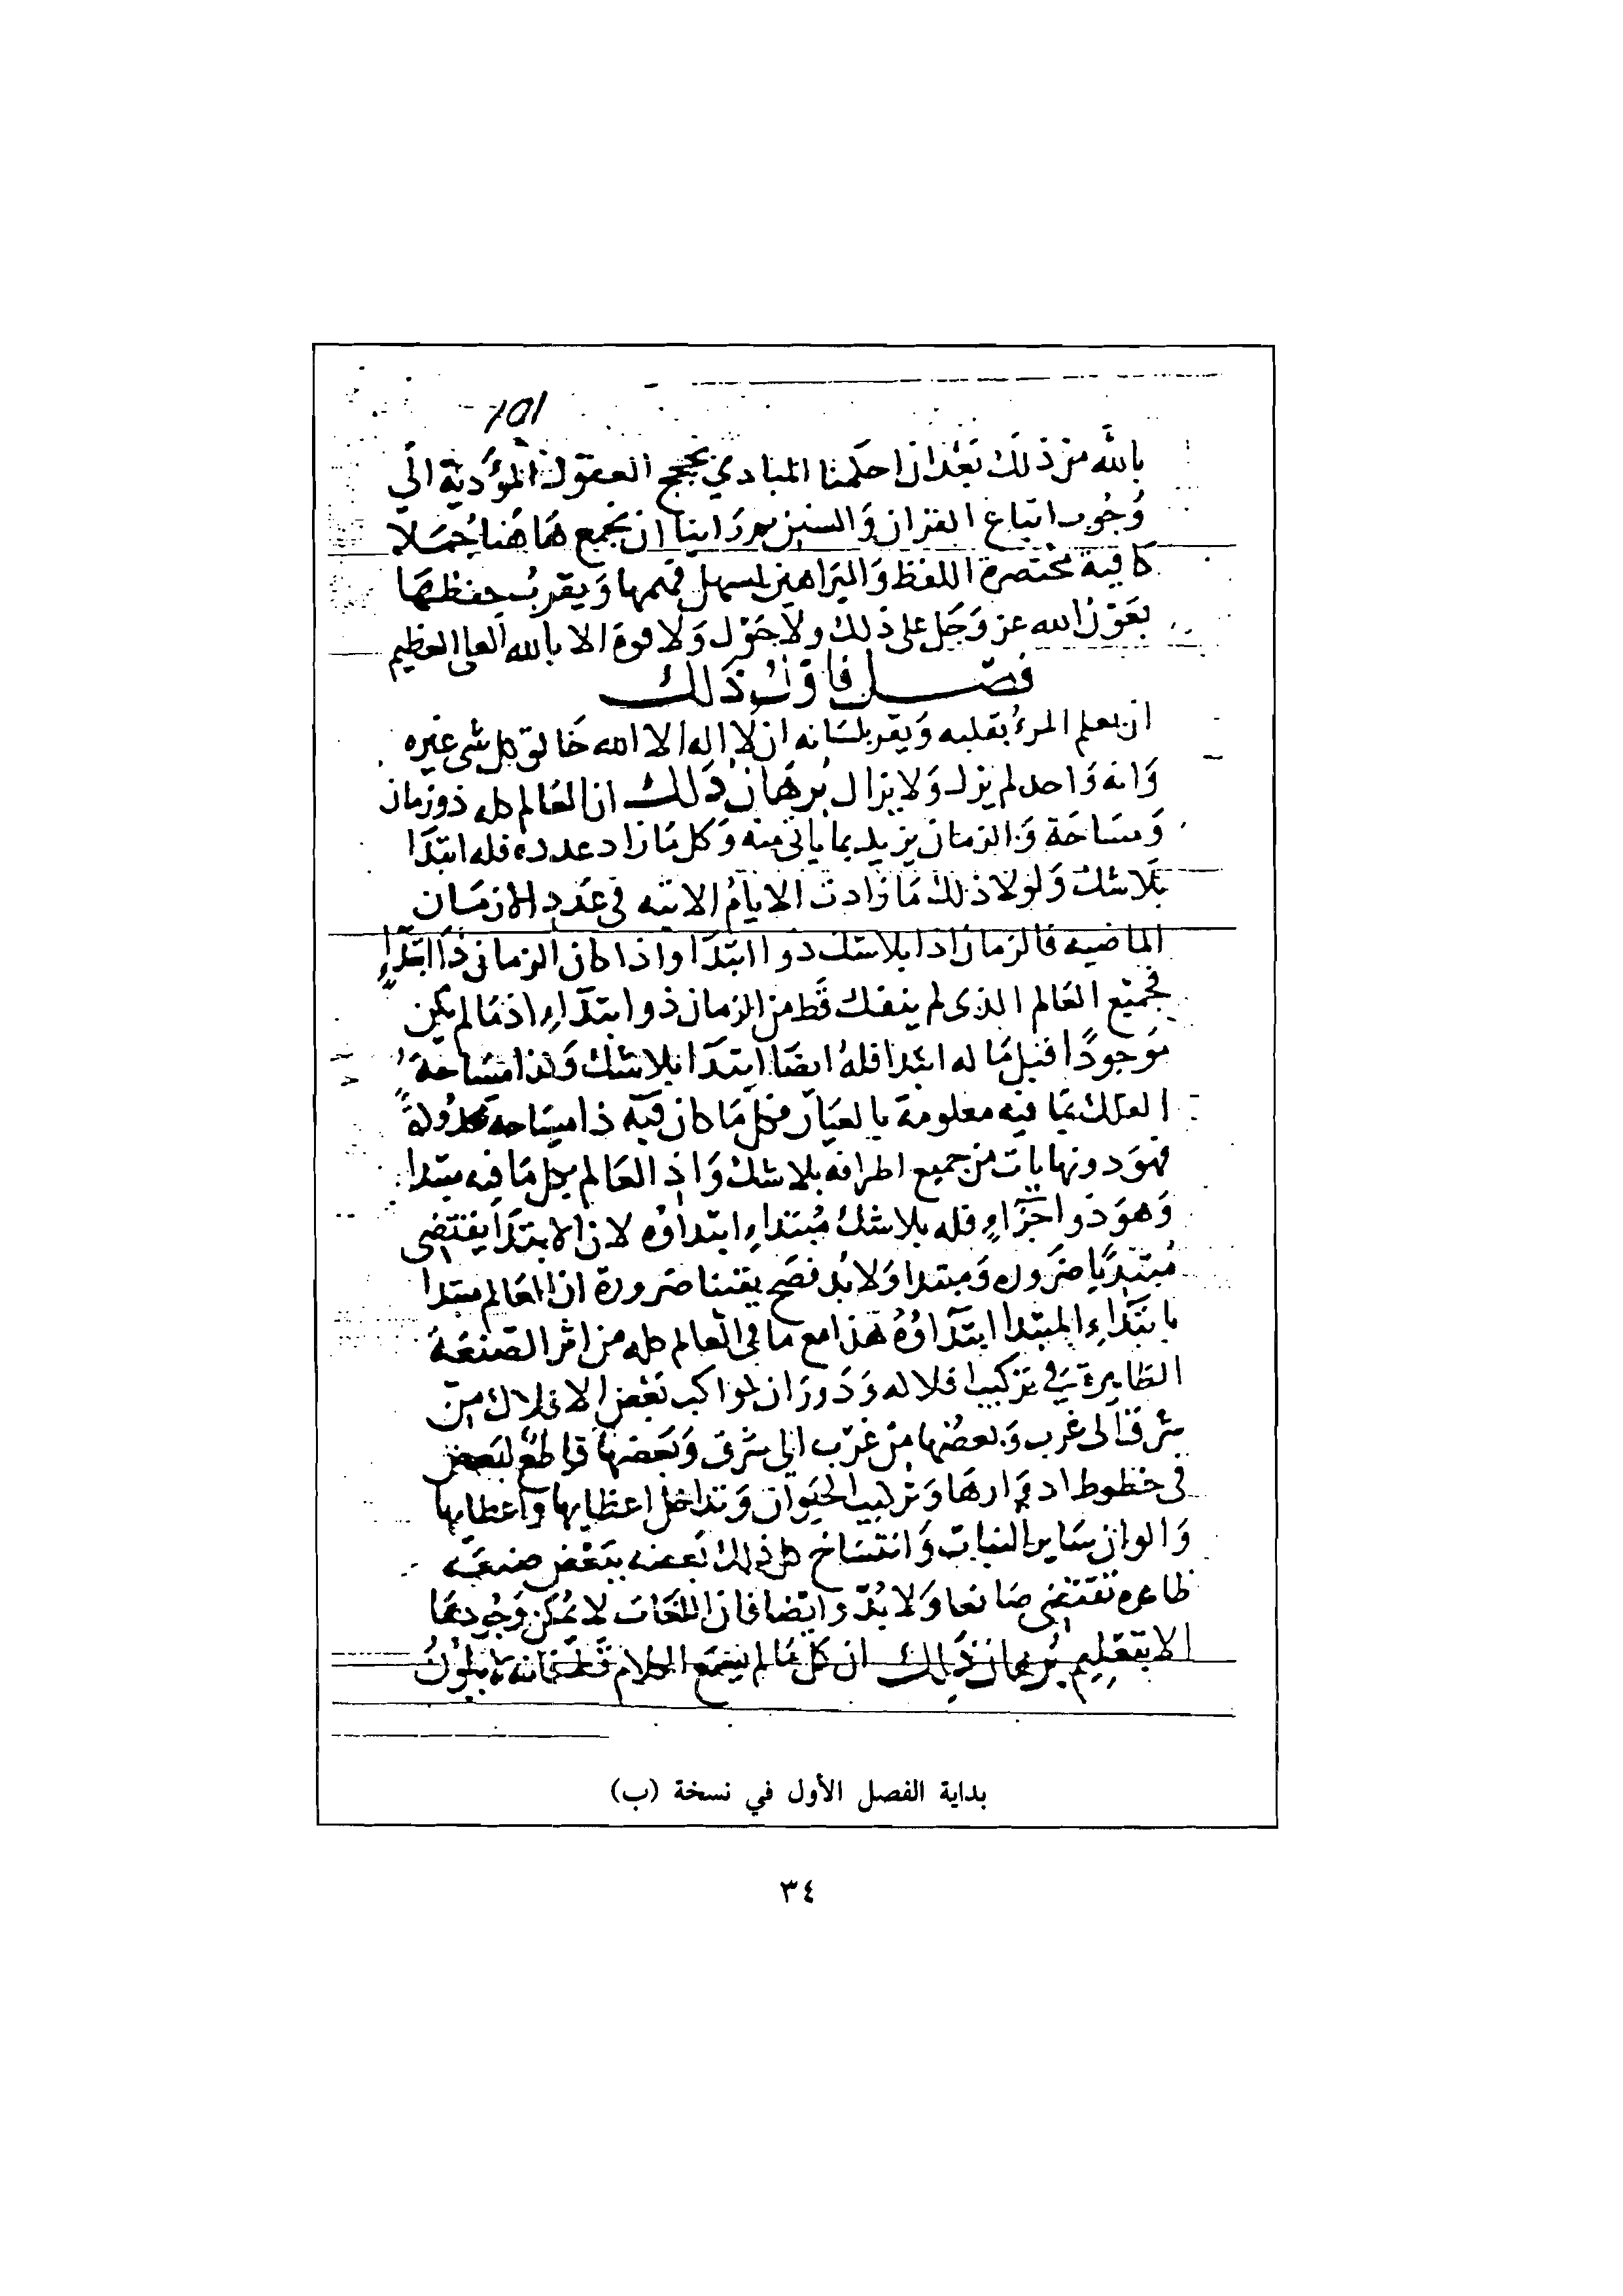 ١٥١
بالله من ذلك بَعْدَ ان احكمنا المبادي بحجج العقول المؤدية الي
وُجُوب اتباع القران وَالسنن راينا ان نجمع هَاهُنا جُمَلا
كافية مختصرة اللفظ وَالبَراهين ليسهل فهمها وَيقربُ حفظهَا
بعَوْن الله عز وَجَل على ذلك ولا حَوْل وَلا قوة الا بالله العلى العظيم
فصْل فاوّل ذَلك
ان يعلم المرءُ بقلبه وَيقر بلسَانه ان لا اله الا الله خَالق كل شى غيره
وَانه وَاحد لم يزل وَلا يزال بُرهَان ذَلك ان العَالم كله ذو زمان
وَمسَاحَة وَالزمَان يزيد بما ياتى منه وَكل مَا زاد عدده فله ابتدَا
بلَا شك وَلولا ذلك مَا زادت الايامُ الاتيه فى عَدَد الازمَان
الماضيه فالزمان اذا بلا شك ذو ابتدَا واذا كان الزمان ذَا ابتدَاءٍ
فجميْع العَالم الذى لم ينفك قَط من الزمان ذو ابتدَاءٍ اذ مَا لم يكن
مَوجودًا قبل مَا له ابتدا فلهُ ايضَا ابتدَا بلا شك وَكذا مسَاحَة
الفلك بمَا فيه معلومة بالعيَان فكل مَا كان فيَه ذا مسَاحه
فهوَ ذو نهايات من جميع اطرافه بلا شك وَاذ العَالم بكل مَا فيه مبتدا
وَهوَ ذو اجْزَاءٍ فله بلا شك مُبتدء ابتدَاؤه لان الابتدَا يقتضى
مُبتدِيًا ضَرورة وَمبتدا وَلا بُد فصَح يقينا ضرورة ان العَالم مبتدا
بابتدَاءِ المبتدا ابتدَاؤهُ هَذا مع ما فى العَالم كله من اثر الصّنعَة
الظاهرة فى تركيب افلاكه وَدَورَان كواكب بَعْض الافلاك من
شرق الى غرب وَبعضُها منْ غرْب الى شرق وَبَعضهَا قاطعٌ لبَعض
فى خطوط ادوَارهَا وَتركيب الحيَوان وَتداخل اعظايها واعطايها
وَالوان سَاير النبات وَانتسَاخ كل ذلك بَعضه ببَعْض صنعَة
ظاهره تقتضى صَانعا وَلا بُدّ وايْضا فان اللغَات لا يُمكن وُجُودهَا
الا بتَعْلِيم بُرهان ذَلِك ان كل مَا لم يَسْمَع الكلام قَط
بداية الفصل الأول في نسخة (ب)
٣٤